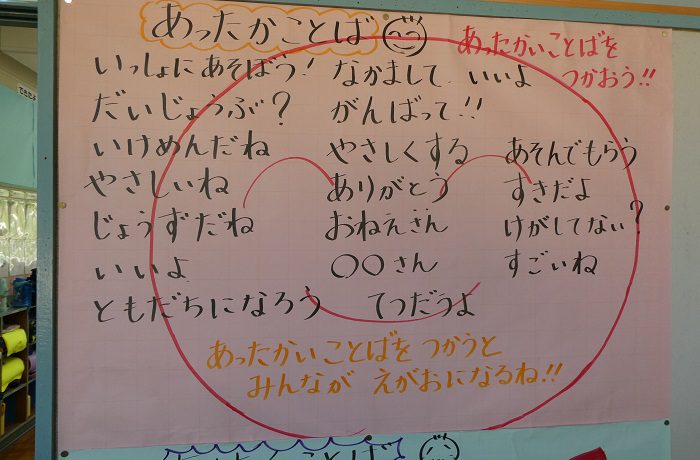 あったかことば
あったかいことばを
つかおう!!
いっしょにあそぼう! なかまして いいよ
だいじょうぶ? がんばって!!
いけめんだね やさしくする あそんでもらう
やさしいね ありがとう すきだよ
じょうずだね おねえさん けがしてない?
いいよ 〇〇さん すごいね
ともだちになろう てつだうよ
あったかいことばを つかうと
みんなが えがおになるね!!